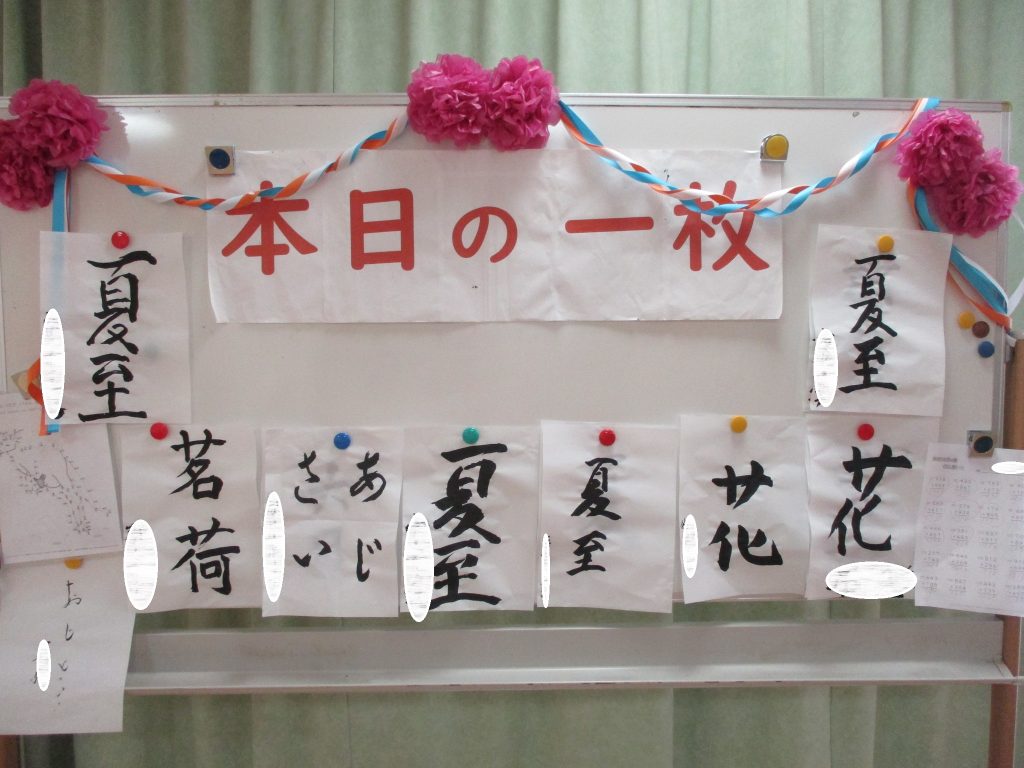 本日の一枚
夏至
夏至
茗荷
あじ
さい
夏至
夏至
花
花